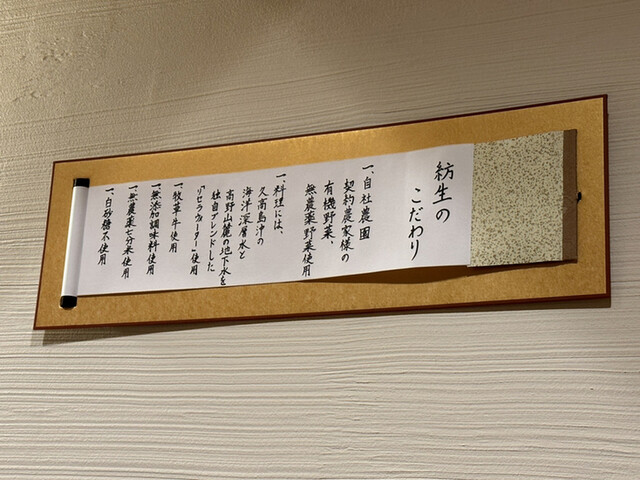 紡生の
こだわり
一、自社農園
契約農家様の
有機野菜、
無農薬野菜使用
一、料理には、
久高島沖の
海洋深層水と
高野山麓の地下水を
独自ブレンドした
「リセラウォーター」使用
一、牧草牛使用
一、無添加調味料使用
一、無農薬七分米使用
一、白砂糖不使用